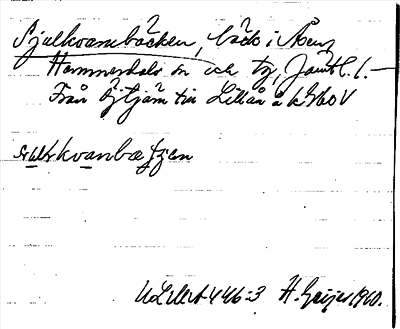 Själkvarnbäcken, bäck i Åsen,
Hammerdals sn och tg, Jämtl. l.
Från Öjtjärn till Lillån å kbl 60 V
kvanbattjen
ULMA 446:3 H. Geijer 1910.